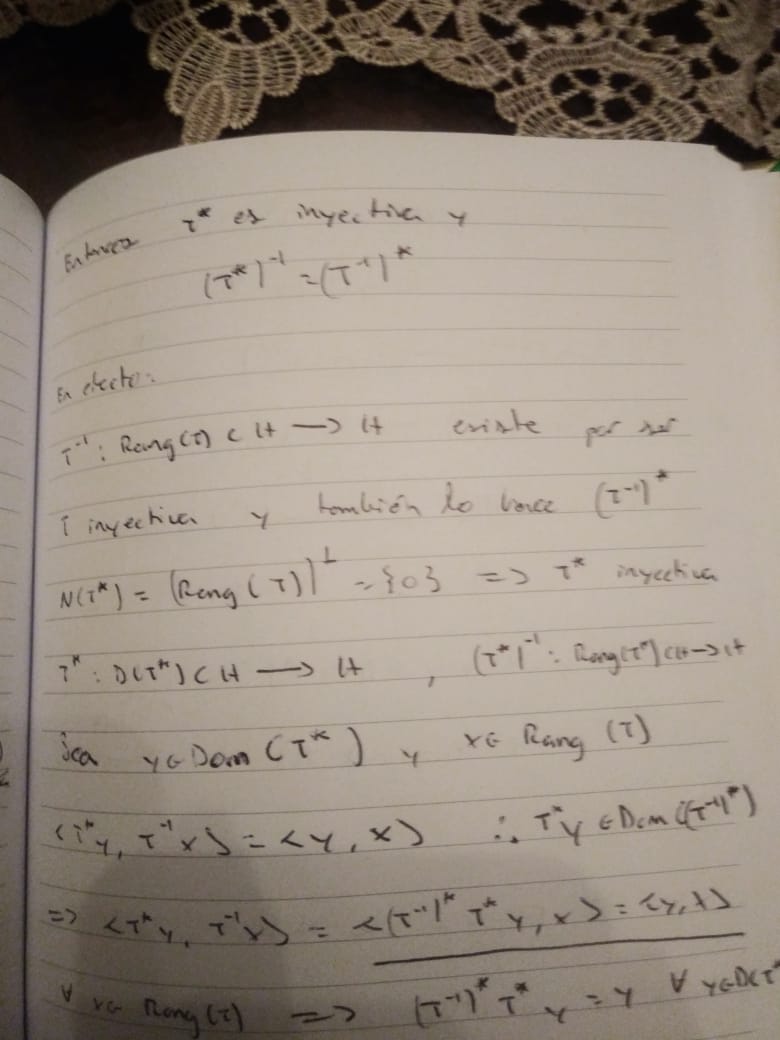 Entonces T* es inyectiva y
(T*)⁻¹ = (T⁻¹)*
En efecto:
T⁻¹ : Rang(T) ⊂ H → H existe por ser
T inyectiva y también lo hace (T⁻¹)*
N(T*) = (Rang(T))^⊥ = {0} => T* inyectiva
T* : D(T*) ⊂ H → H , (T*)⁻¹ : Rang(T*) ⊂ H → H
Sea y ∈ Dom(T*) y x ∈ Rang(T)
<T*y, T⁻¹x> = <y, x> ∴ T*y ∈ Dom((T⁻¹)*)
=> <T*y, T⁻¹x> = <(T⁻¹)* T*y, x> = <y, x>
∀ x ∈ Rang(T) => (T⁻¹)* T* y = y ∀ y ∈ D(T*